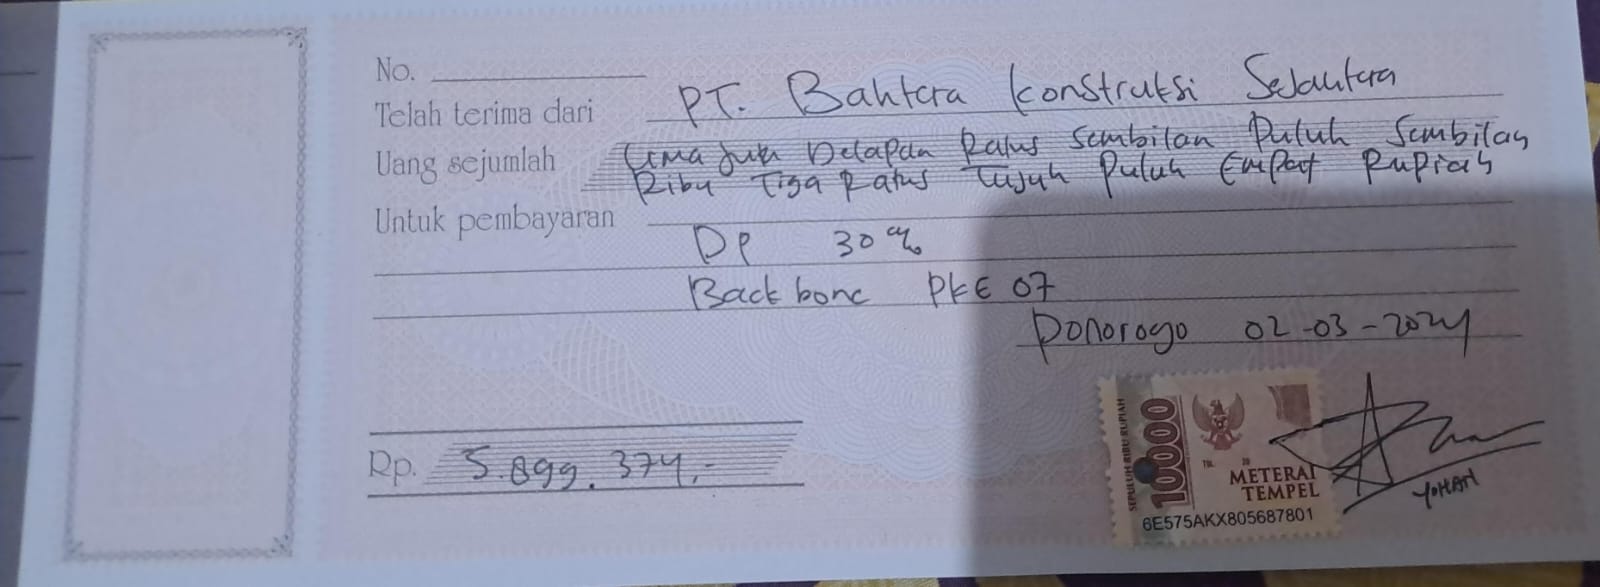 No.
Telah terima dari PT. Bahtera Konstruksi Sejahtera
Uang sejumlah Lima Juta Delapan Ratus Sembilan Puluh Sembilan
Ribu Tiga Ratus Tujuh Puluh Empat Rupiah
Untuk pembayaran
DP 30 %
Back bone PKE 07
Ponorogo 02-03-2024
Rp. 5.899.374,-
SEPULUH RIBU RUPIAH
10000
TGL. 20
METERAI
TEMPEL
6E575AKX805687801
YOHAN